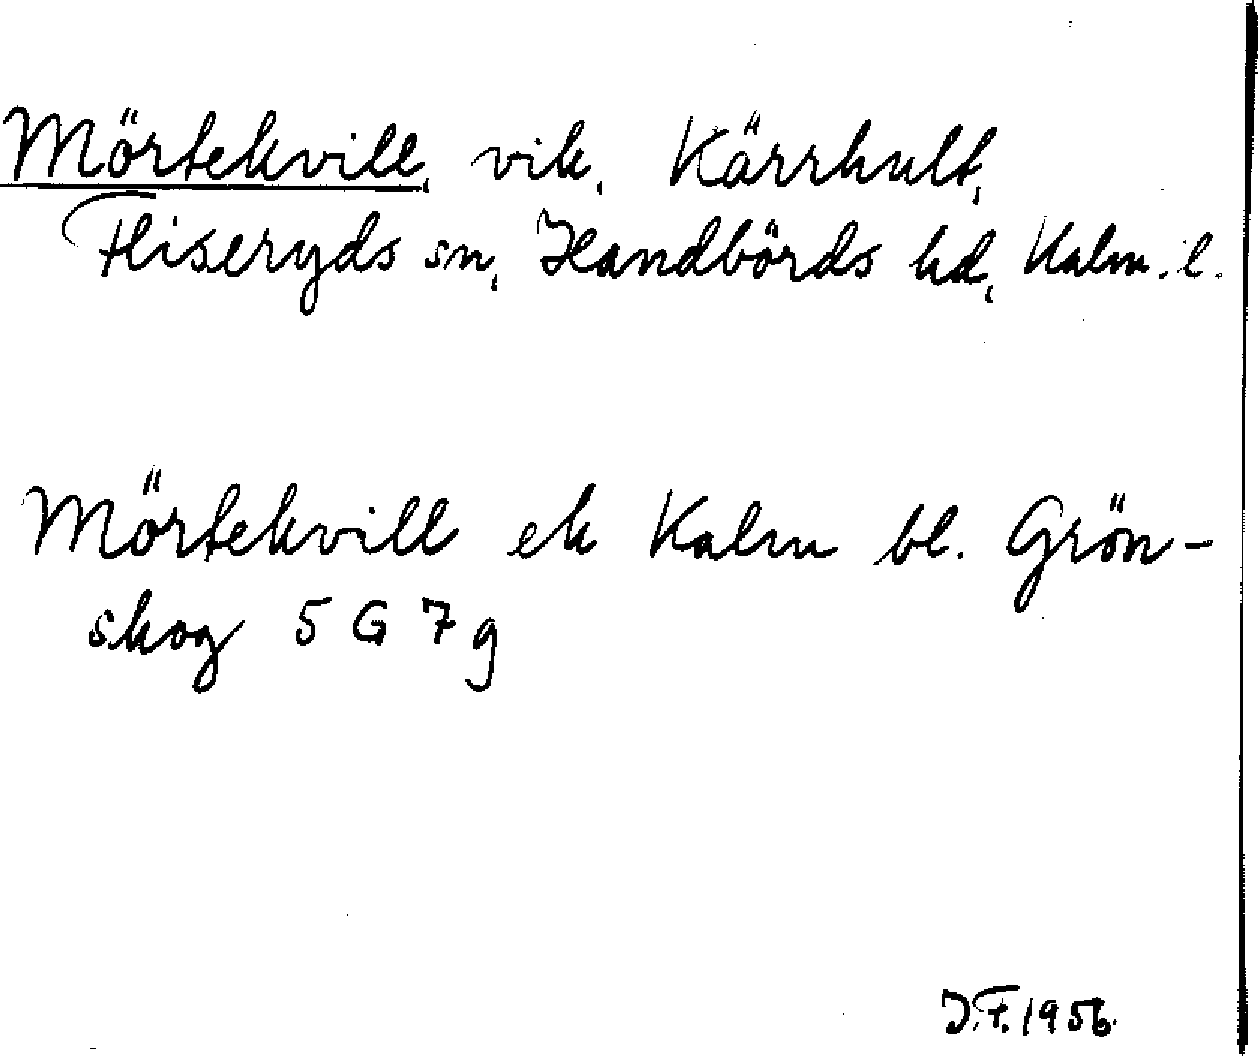 Mörtekvill, vik, Kärrhult,
Fliseryds sn, Handbörds hd, Kalm. l.
Mörtekvill ek Kalm bl. Grön-
skog 5 G 7 g
J.F. 1956.